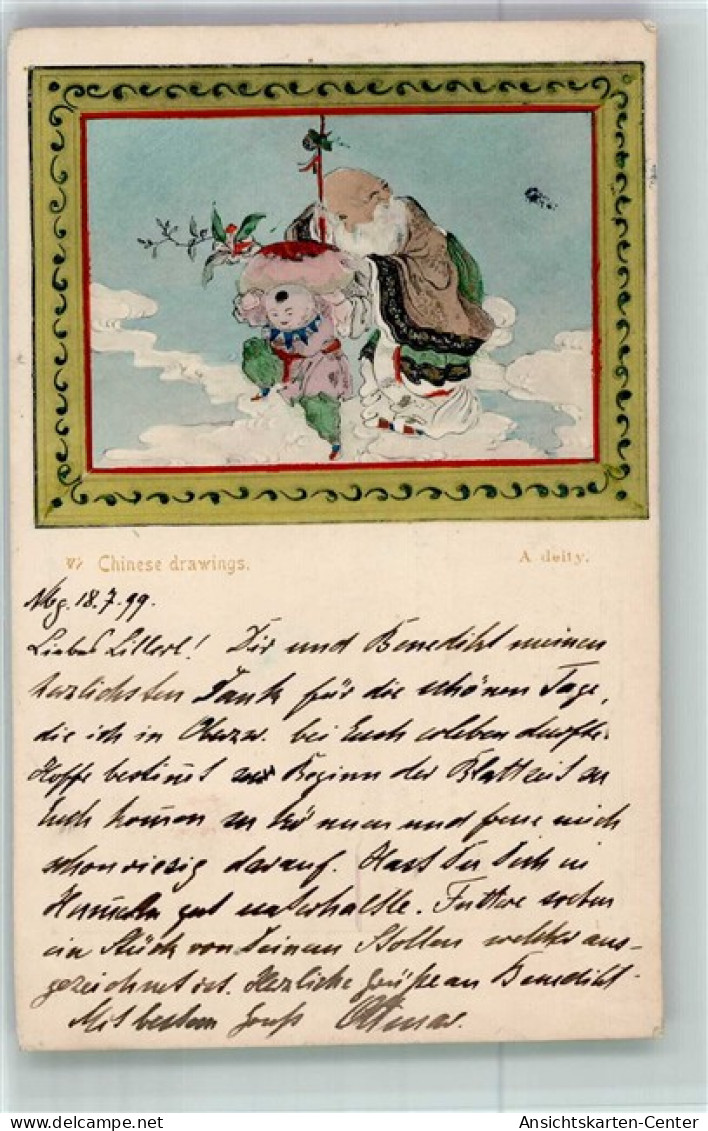 Chinese drawings.
A deity.
Mbg. 18.7.99.
Liebes Lillerl! Dir und Benedikt meinen
herzlichsten Dank für die schönen Tage,
die ich in Oberzw. bei Euch erleben durfte.
Hoffe bestimt zu Beginn der Blattzeit zu
Euch komen zu könen und freue mich
schon riesig darauf. Hast Du Dich in
gut unterhalten. soeben
ein Stück von Deinem Stollen welcher aus-
gezeichnet ist. Herzliche Grüße an Benedikt.
Mit bestem Gruß Ottmar.
Ansichtskarten-Center